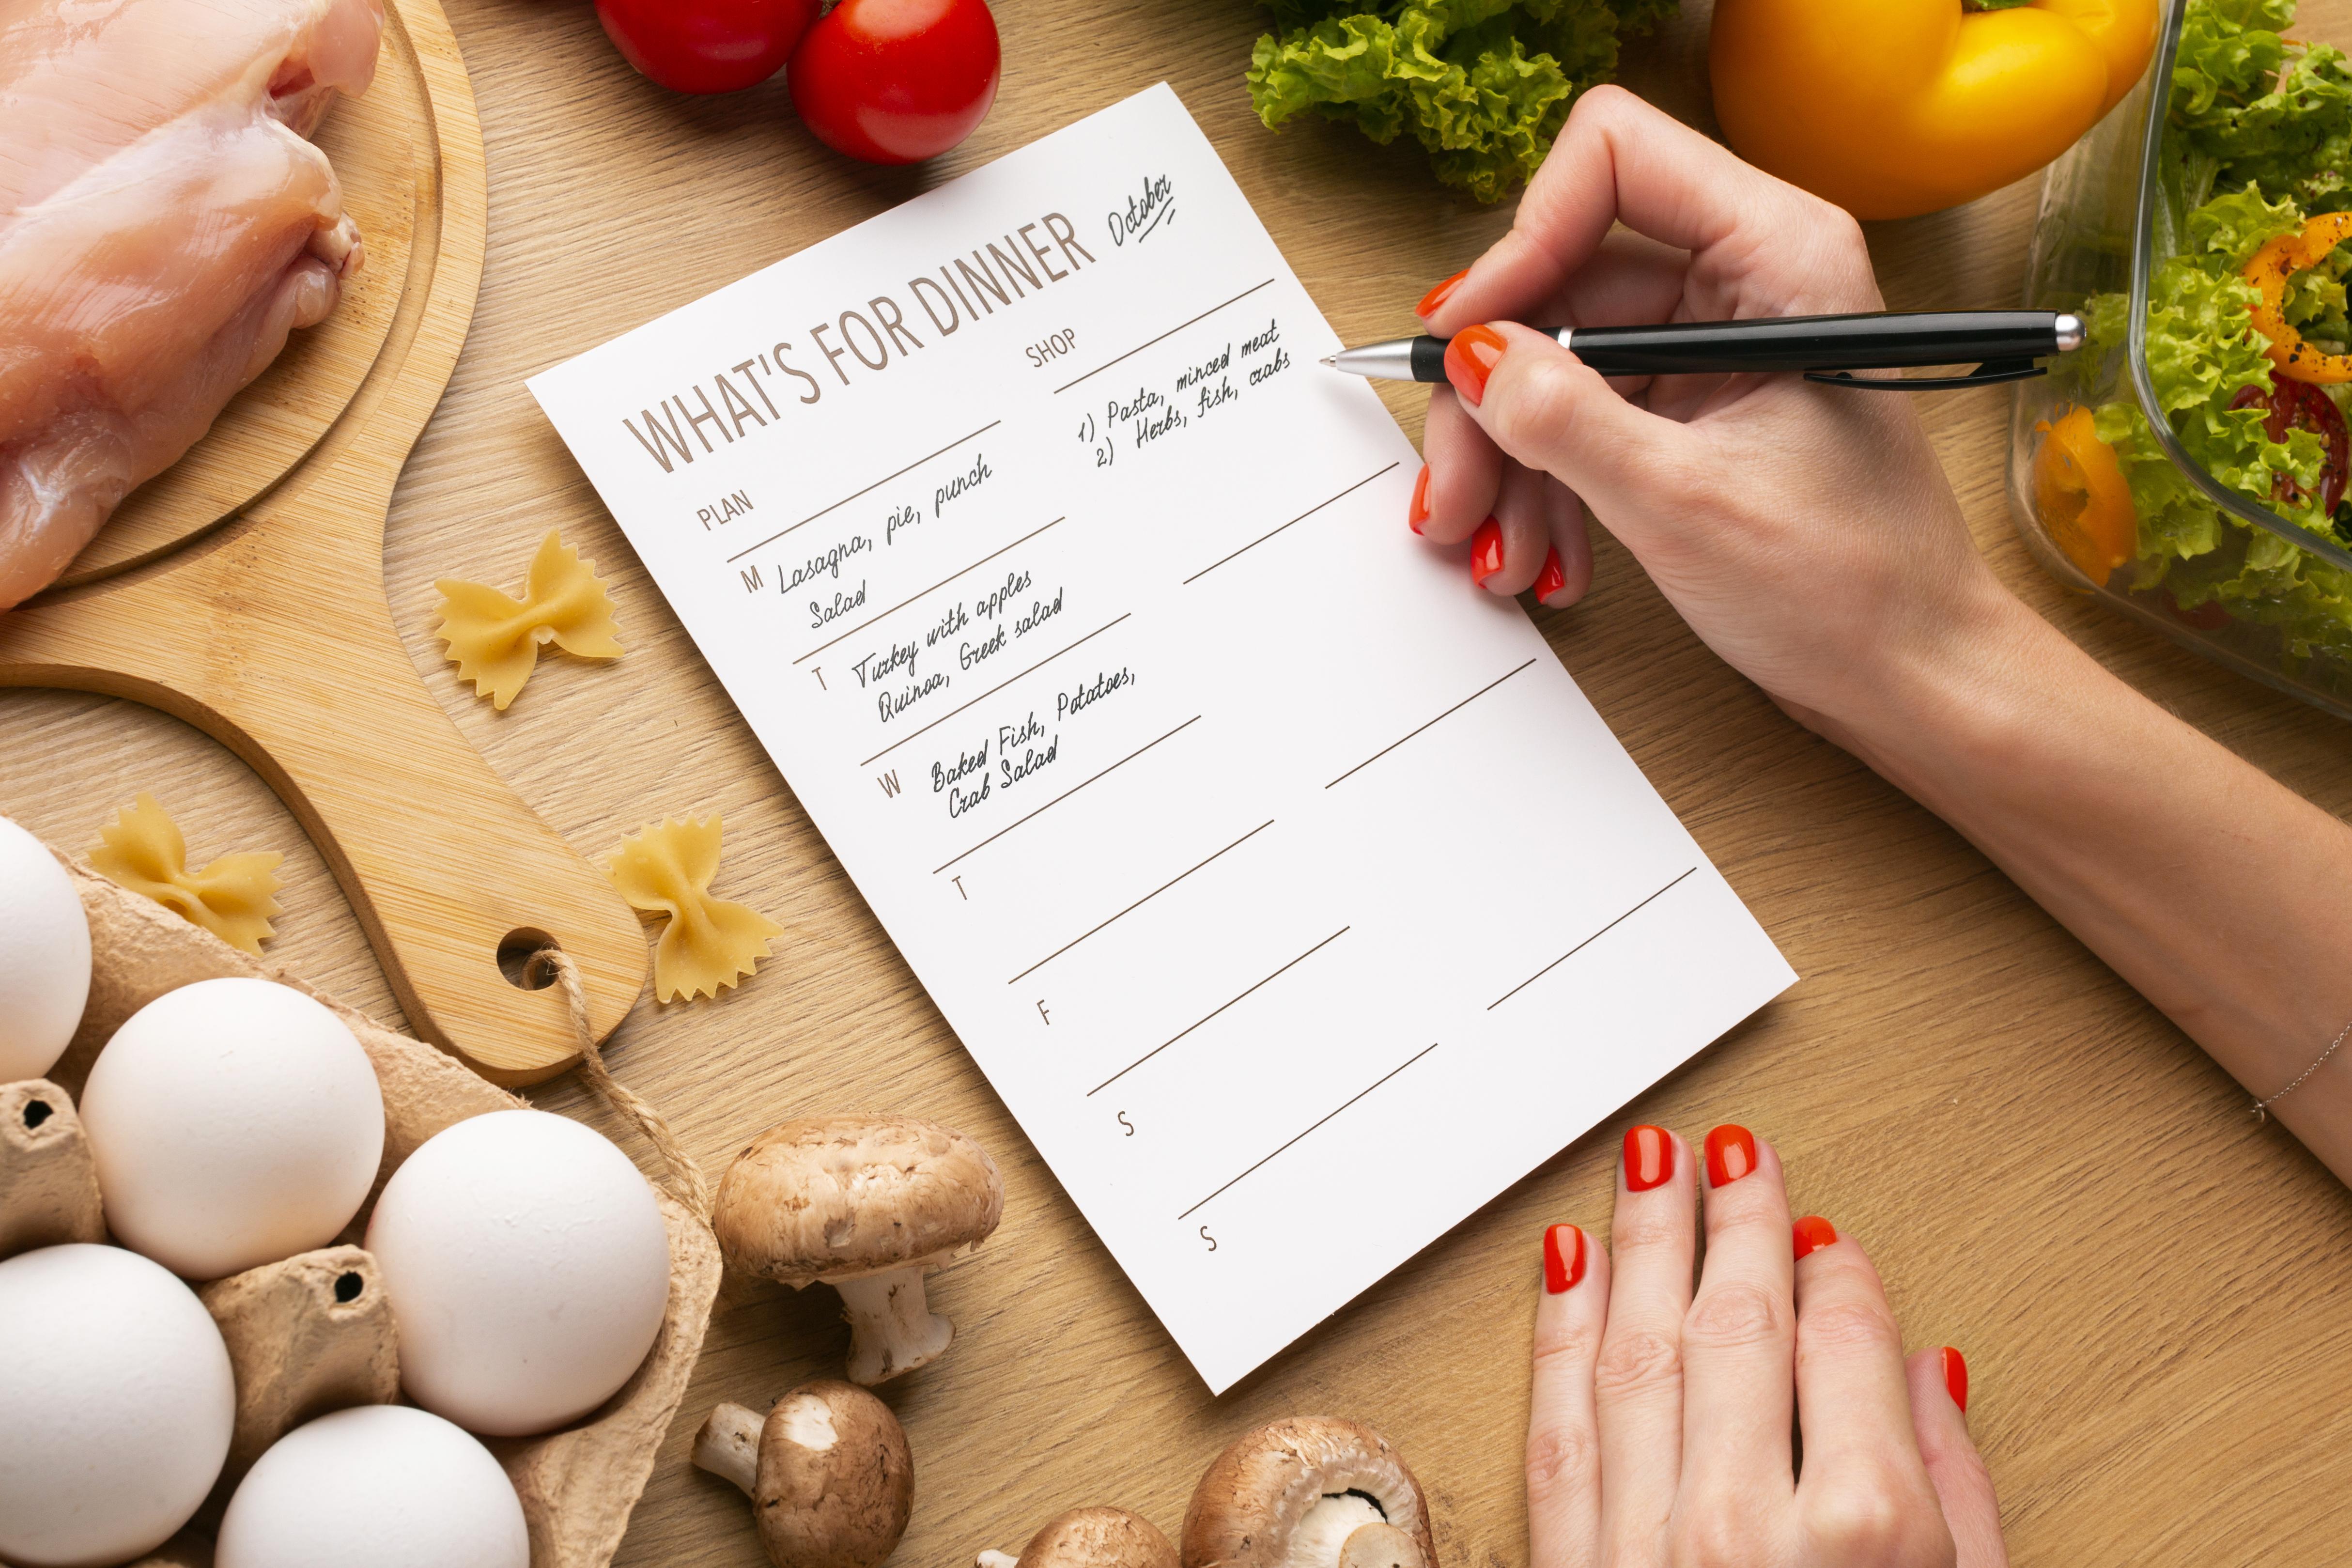 WHAT'S FOR DINNER October
PLAN
M Lasagna, pie, punch
Salad
T Turkey with apples
Quinoa, Greek salad
W Baked Fish, Potatoes,
Crab Salad
T
F
S
S
SHOP
1) Pasta, minced meat
2) Herbs, fish, crabs